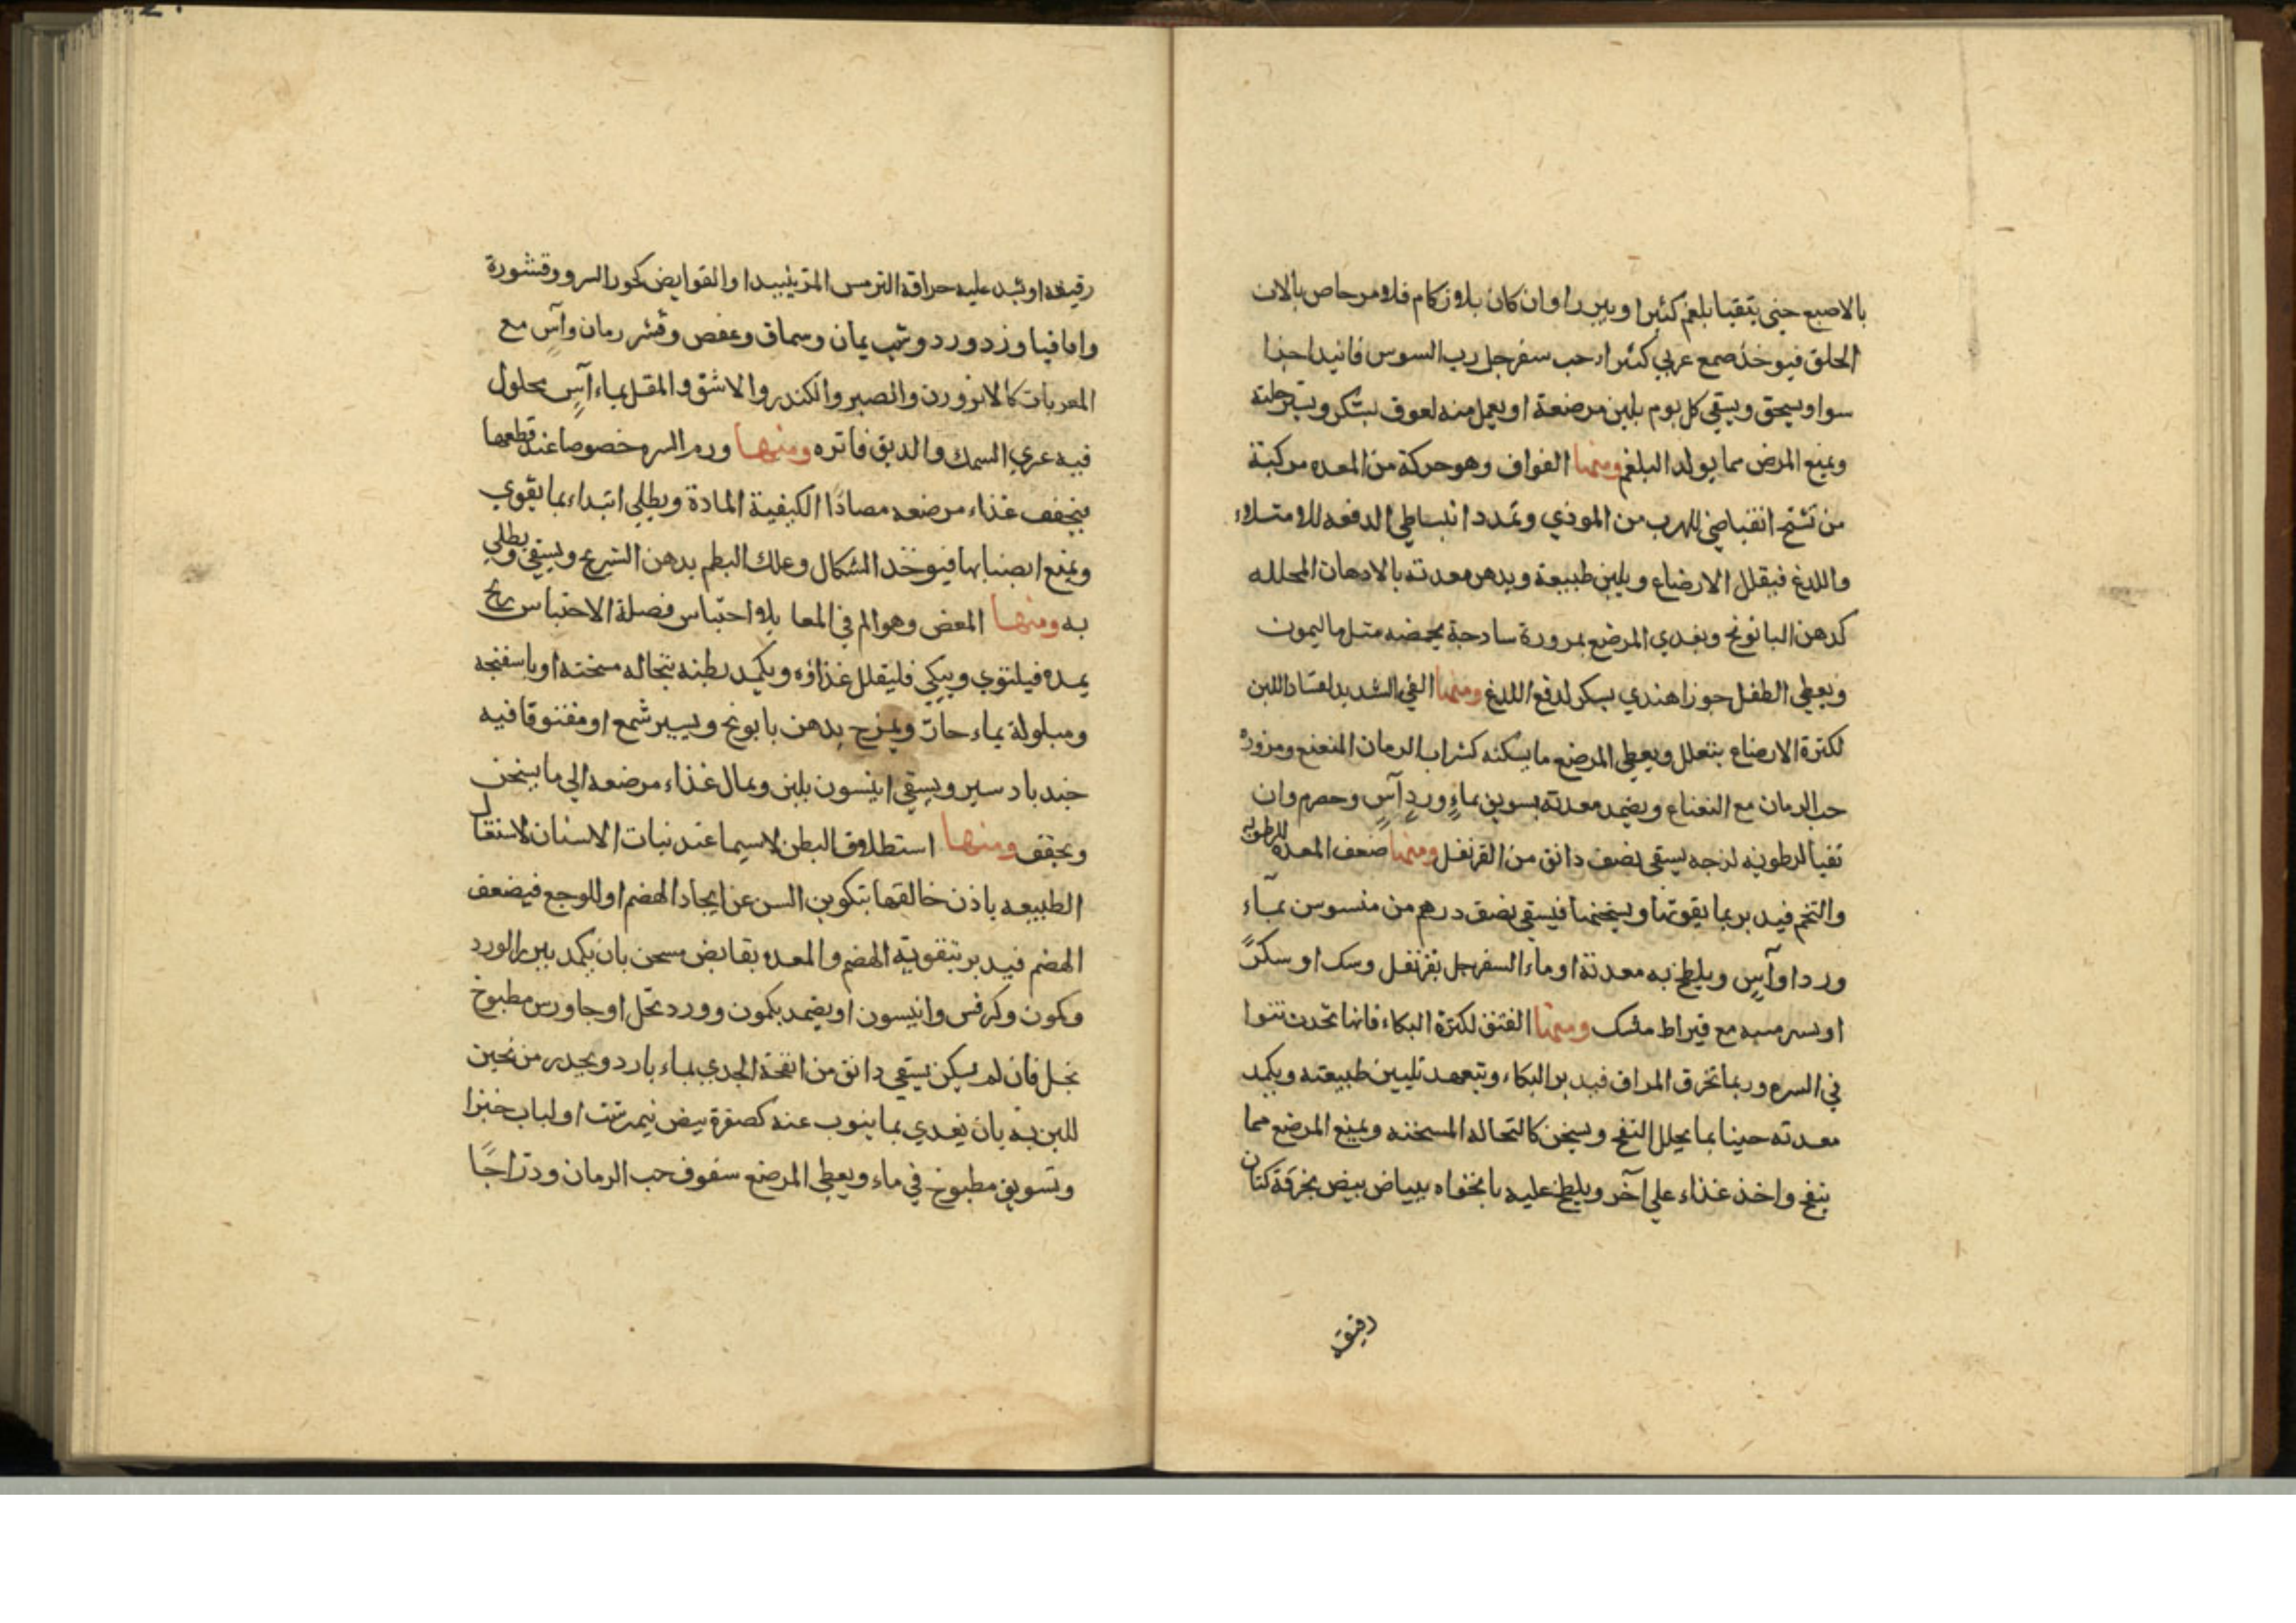 بالاصبع حتى يتقيا بلغم كثيرا ويبرا وان كان بلا زكام فلا مرخاص بالات
الحلق فيوخذ صمغ عربي كثيرا حب سفرجل رب السوس فانيد اجزا
سوا ويسحق ويسقي كل يوم بلبن مرضعة او يعمل منه لعوق بسكر
ويمنع المرض مما يولد البلغم ومنها الفواق وهو حركة من المعده مركبة
من تشنج انقباضي للهرب من الموذي وتمدد انبساطي لدفعه للامتلاء
واللدغ فيقلل الارضاع ويلين طبيعة ويدهن معدته بالادهان المحلله
كدهن البانونج ويغدي المرضع بمرورة سادجة بحمضه متل ماليمون
ويعطي الطفل جوزا هندي بسكر لدفع اللدغ ومنها القي الشديد لفساد اللبن
لكترة الارضاع بتعلل ويعطي المرضع ما يسكنه كشراب الرمان المنعنع ومزورة
حب الرمان مع النعناع ويضمد معدته بسويق بماء ورد آس وحصرم وان
تقيا لرطوبه لزجه يسقي نصف دانق من القرنفل ومنها ضعف المعده للرطوبه
والتخم فيدبر بما يقوتها ويسخنها فيسقي نصف درهم من منسوس بمآء
ورد او آس ويلطخ به معدتة او ماء السفرجل بقرنفل وسك او سكر
او بسر مسه مع قيراط مشك ومنها الفتق لكترة البكاء فانها تحدث نتوا
في السره وربما تخرق المراق فيدبر البكاء ويتعهد تليين طبيعته ويكمد
معدته حينا بما يحلل النفخ ويسخن كالتحاله المسخنه ويمنع المرضع مما
ينفخ واخذ غذاء علي آخر ويلطخ عليه بانخواه ببياض بيض بخرقة كتان
رقيقه
رقيقه او يشد عليه حراقة الترمس المتر بنبيدا والقوايض كجوز السرو وقشورة
واقاقيا وزد ورد وشب يمان وسماق وعفص وقشر رمان وآس مع
المعريات كالانزورن والصبر والكندر والاشق والمقل بماء آس محلول
فيه عري السمك والدبق فاتره ومنها ورم السره خصوصا عند قطعها
فيخفف غذاء مرضعه مصادا الكيفية المادة ويطلي ابتداء بما يقوي
ويمنع انصبابها فيوخد الشكال وعلك البطم بدهن الشيرج ويسقي ويطلي
به ومنها المغص وهو الم في المعا بلا احتباس فصلة الاحتباس ريح
يمده فيلتوي ويبكي فليقلل غذاؤه ويكمد بطنه بنحاله مسخنه او باسفنجه
ومبلولة بماء حار ويمزج بدهن بابونج ويسير شمع او مفتوقا فيه
جند بادستير ويسقي انيسون بلبن ويمال غذاء مرضعه الي ما يسخن
ويجفف ومنها استطلاق البطن لاسيما عند نبات الاسنان لاشتغال
الطبيعه باذن خالقها بتكوين السن عن ايجاد الهضم او للوجع فيضعف
الهضم فيدبر بتقوية الهضم والمعده بقابض مسخن بان يكمد ببزر الورد
وكمون وكرفس وانيسون او يضمد بكمون وورد بخل او جاورس مطبوخ
بخل فان لم يسكن يسقي دانق من انفحة الجدي بماء بارد ويحدر من تجبن
اللبن به بان يغدي بما ينوب عنه كصفرة بيض نيمرشت او لباب خبزا
وتسويق مطبوخ في ماء ويعطي المرضع سفوف حب الرمان ودراجا